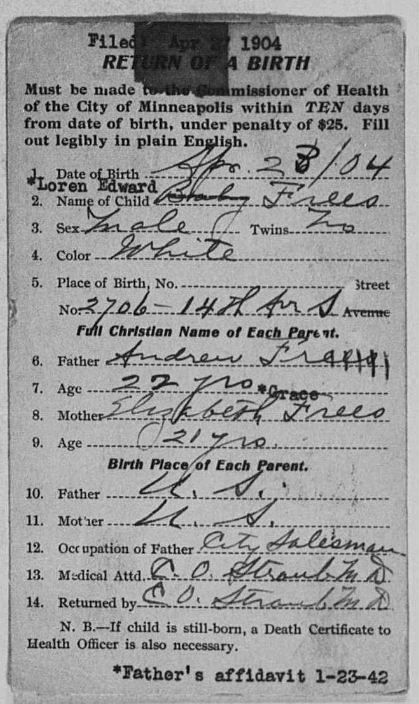 Filed Apr 27 1904
RETURN OF A BIRTH
Must be made to the Commissioner of Health
of the City of Minneapolis within TEN days
from date of birth, under penalty of $25. Fill
out legibly in plain English.
1. Date of Birth Apr. 23/04
*Loren Edward
2. Name of Child Baby Frees
3. Sex Male Twins No
4. Color White
5. Place of Birth, No. Street
No. 2706 - 14th Av S Avenue
Full Christian Name of Each Parent.
6. Father Andrew
7. Age 22 yrs
*Grace
8. Mother Elizabeth Frees
9. Age 21 yrs.
Birth Place of Each Parent.
10. Father U. S.
11. Mother U. S.
12. Occupation of Father City Salesman
13. Medical Attd. C. O. Straub M D
14. Returned by C O. Straub M D
N. B.—If child is still-born, a Death Certificate to
Health Officer is also necessary.
*Father's affidavit 1-23-42